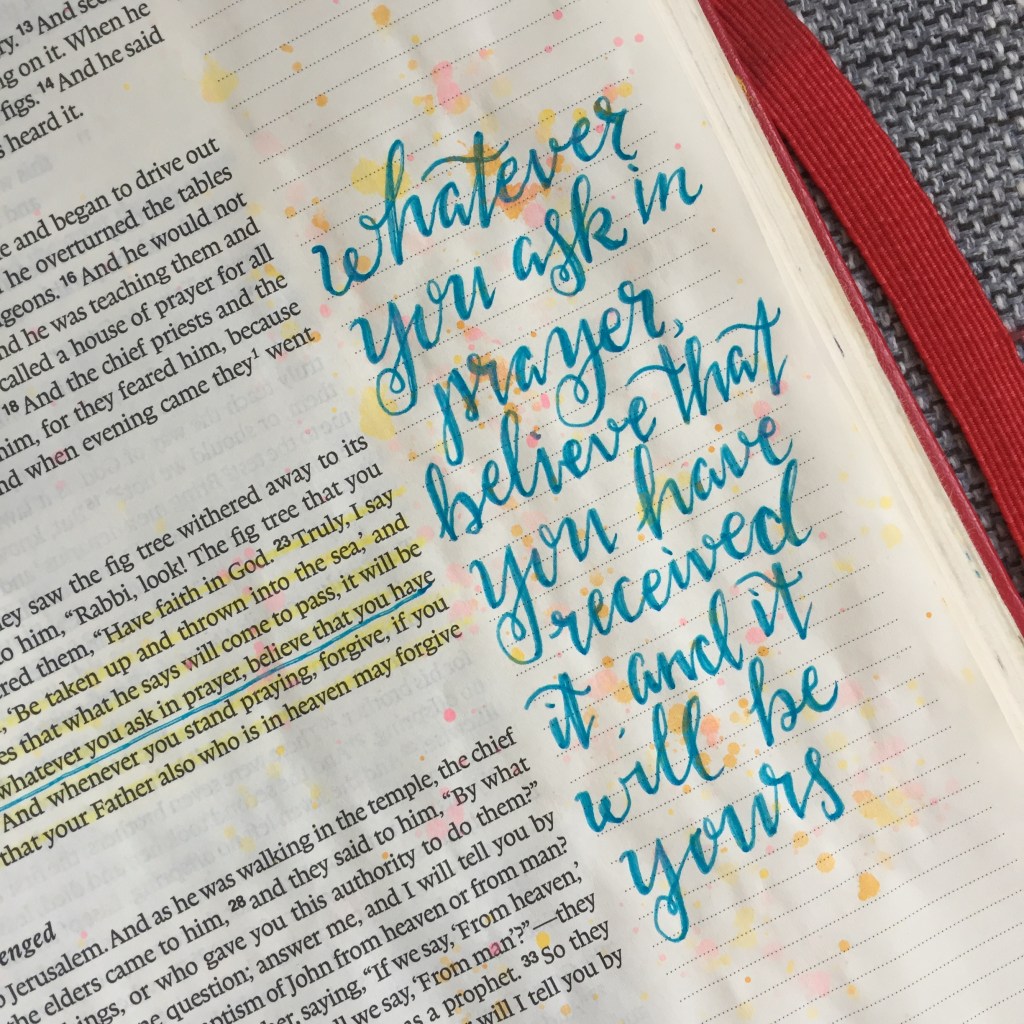 ry. 13 And see
ng on it. When he
figs. 14 And he said
s heard it.
e and began to drive out
he overturned the tables
geons. 16 And he would not
nd he was teaching them and
called a house of prayer for all
18 And the chief priests and the
him, for they feared him, because
nd when evening came they¹ went
ey saw the fig tree withered away to its
to him, “Rabbi, look! The fig tree that you
red them, “Have faith in God. 23 Truly, I say
‘Be taken up and thrown into the sea,’ and
es that what he says will come to pass, it will be
whatever you ask in prayer, believe that you have
And whenever you stand praying, forgive, if you
that your Father also who is in heaven may forgive
enged
o Jerusalem. And as he was walking in the temple, the chief
he elders came to him, 28 and they said to him, “By what
ings, or who gave you this authority to do them?”
ne question; answer me, and I will tell you by
ptism of John from heaven or from man?
her, saying, “If we say, ‘From heaven,’
ll we say, ‘From man’?”—they
as a prophet. 33 So they
will I tell you by
whatever
you ask in
prayer,
believe that
you have
received
it and it
will be
yours